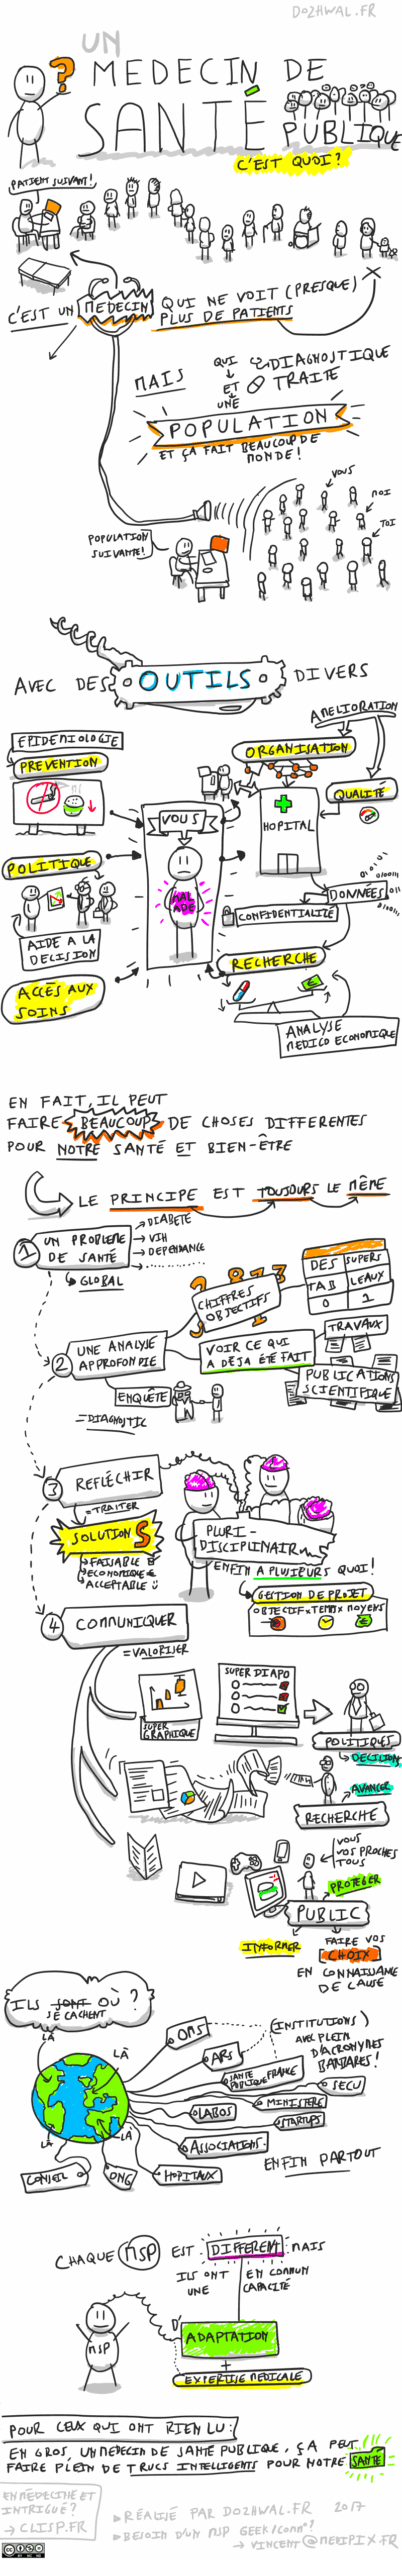 DOZHWAL.FR
UN
MEDECIN DE
SANTÉ
PUBLIQUE
C'EST QUOI?
PATIENT SUIVANT!
C'EST UN MEDECIN QUI NE VOIT (PRESQUE)
PLUS DE PATIENTS
MAIS
QUI DIAGNOSTIQUE
ET TRAITE
UNE
POPULATION
ET ÇA FAIT BEAUCOUP DE
MONDE!
VOUS
MOI
TOI
POPULATION
SUIVANTE!
AVEC DES OUTILS DIVERS
AMELIORATION
EPIDEMIOLOGIE
PREVENTION
ORGANISATION
QUALITÉ
VOUS
HOPITAL
MALADE
POLITIQUE
AIDE A LA
DECISION
DONNÉES
CONFIDENTIALITÉ
RECHERCHE
ACCÈS AUX
SOINS
ANALYSE
MEDICO ECONOMIQUE
EN FAIT, IL PEUT
FAIRE BEAUCOUP DE CHOSES DIFFERENTES
POUR NOTRE SANTÉ ET BIEN-ÊTRE
LE PRINCIPE EST TOUJOURS LE MÊME
1
UN PROBLEME
DE SANTÉ
GLOBAL
DIABETE
VIH
DEPENDANCE
2
UNE ANALYSE
APPROFONDIE
CHIFFRES
OBJECTIFS
DES SUPERS
TAB LEAUX
0 1
VOIR CE QUI
A DEJA ÉTÉ FAIT
TRAVAUX
PUBLICATIONS
SCIENTIFIQUE
ENQUÊTE
=DIAGNOSTIC
3
REFLÉCHIR
=TRAITER
SOLUTIONS
FAISABLE
ECONOMIQUE €
ACCEPTABLE
PLURI-
DISCIPLINAIRE
ENFIN A PLUSIEURS QUOI!
GESTION DE PROJET
OBJECTIF x TEMPS x MOYENS
4
COMMUNIQUER
=VALORISER
SUPER
GRAPHIQUE
SUPER DIAPO
POLITIQUES
DECISION
AVANCER
RECHERCHE
VOUS
VOS PROCHES
TOUS
PROTEGER
PUBLIC
INFORMER
FAIRE VOS
CHOIX
EN CONNAISSANCE
DE CAUSE
ILS SONT OÙ?
SE CACHENT
LÀ
LÀ
LÀ
LÀ
OMS
ARS
SANTE
PUBLIQUE FRANCE
(INSTITUTIONS)
AVEC PLEIN
D'ACRONYMES
BARBARES!
SECU
MINISTERE
LABOS
STARTUPS
ASSOCIATIONS
ENFIN PARTOUT
CONSEIL
ONG
HOPITAUX
CHAQUE MSP EST DIFFERENT MAIS
ILS ONT EN COMMUN
UNE CAPACITÉ
MSP
D'
ADAPTATION
+
EXPERTISE MEDICALE
POUR CEUX QUI ONT RIEN LU:
EN GROS, UN MEDECIN DE SANTÉ PUBLIQUE, ÇA PEUT
FAIRE PLEIN DE TRUCS INTELLIGENTS POUR NOTRE SANTÉ
EN MÉDECINE ET
INTRIGUÉ?
→ CLISP.FR
RÉALISÉ PAR DOZHWAL.FR 2017
BESOIN D'UN MSP GEEK/COMM?